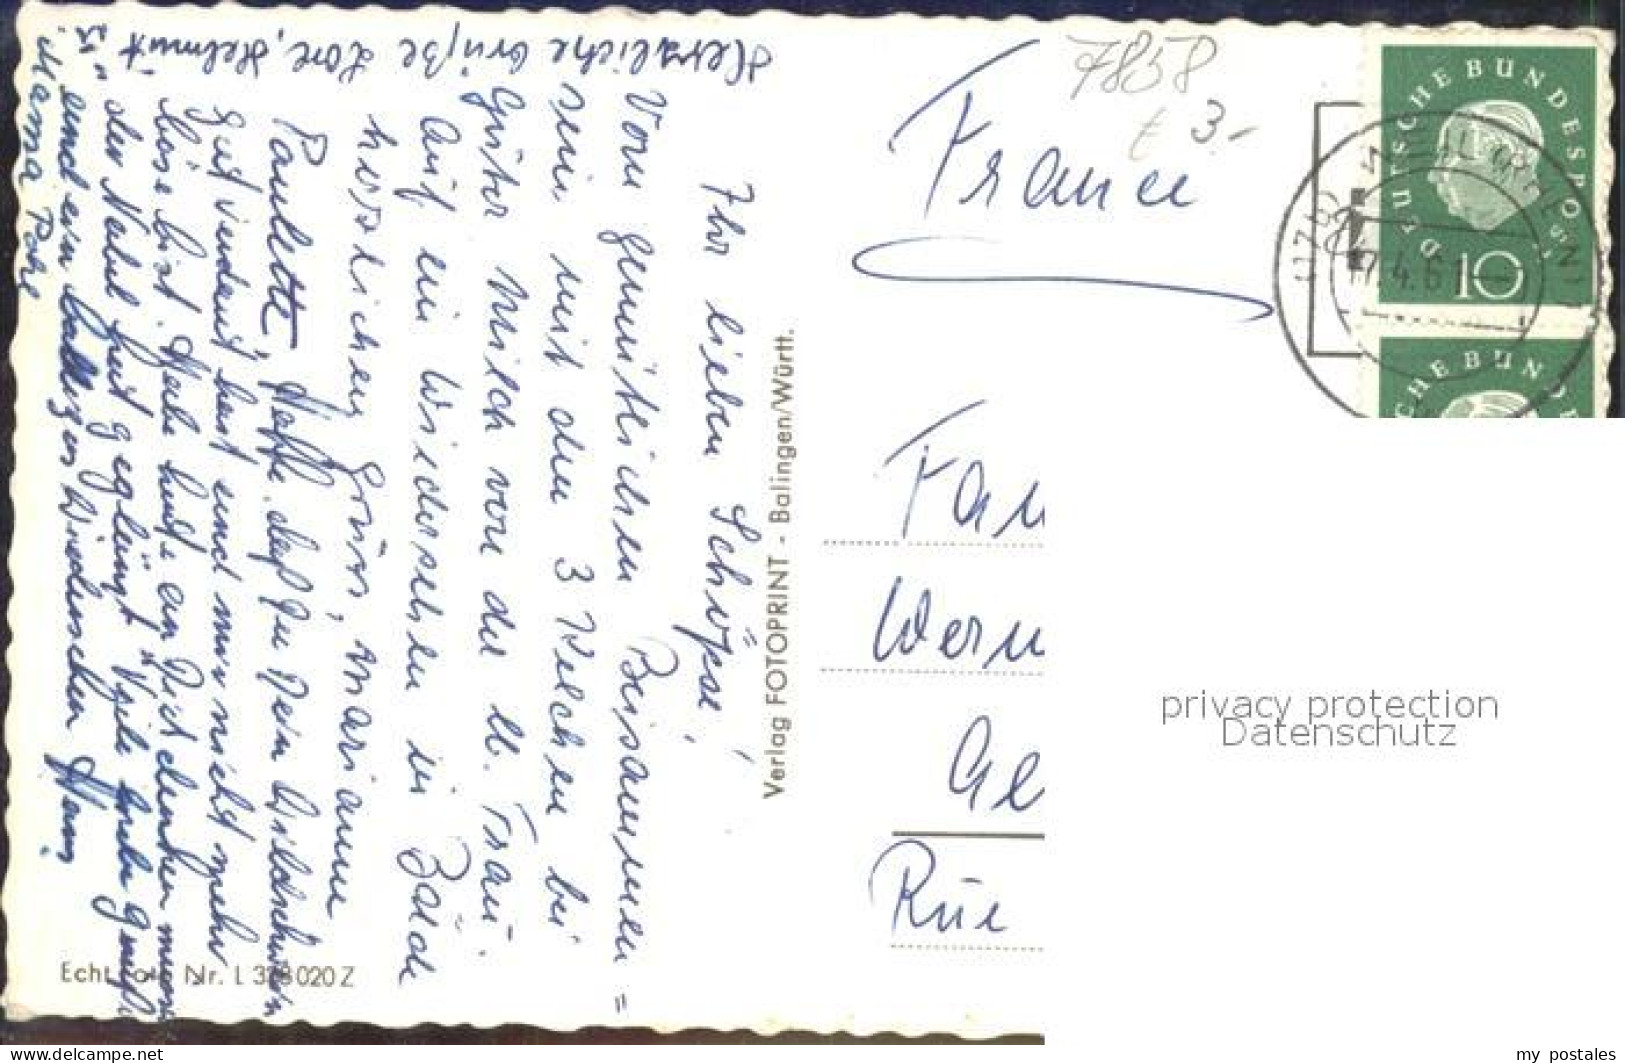 Ihr lieben Schöpse!
Vom gemütlichen Beisammen=
sein mit den 3 Kelchen bei
guter Milch von der lb. Frau.
Auf ein Wiedersehen in Bälde
herzlichen Gruss, Marianne
Paulette, hoffe, daß Du Dein Wildschwein
gut verdaut hast und mir nicht mehr
böse bist. Habe heute an Dich denken müssen
der Nabel hat geglänzt. Viele liebe Grüße
und ein baldiges Wiedersehen Hans
Mama
Herzliche Grüße Lore, Helmut
Verlag FOTOPRINT - Balingen/Württ.
Echt Foto Nr. L 328020Z
7858
3.-
France
Fam
Wern
Ge
Rue
DEUTSCHE BUNDESPOST
10
4.61
CHE BUN
privacy protection
Datenschutz
my_postales
www.delcampe.net